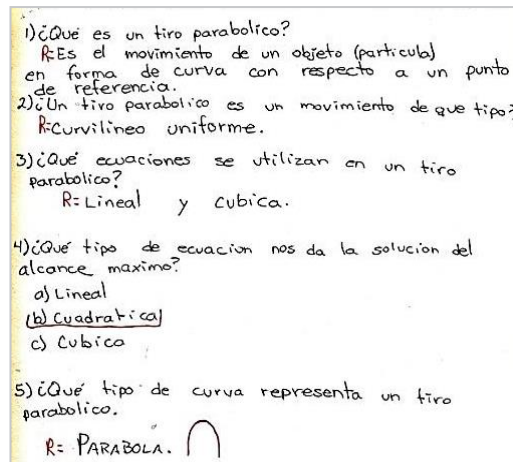 1)¿Qué es un tiro parabolico?
R:Es el movimiento de un objeto (particula)
en forma de curva con respecto a un punto
de referencia.
2)¿Un tiro parabolico es un movimiento de que tipo?
R:Curvilineo uniforme.
3)¿Qué ecuaciones se utilizan en un tiro
parabolico?
R: Lineal y cubica.
4)¿Qué tipo de ecuacion nos da la solucion del
alcance maximo?
a) Lineal
(b) Cuadratica)
c) Cubica
5)¿Qué tipo de curva representa un tiro
parabolico.
R= PARABOLA.